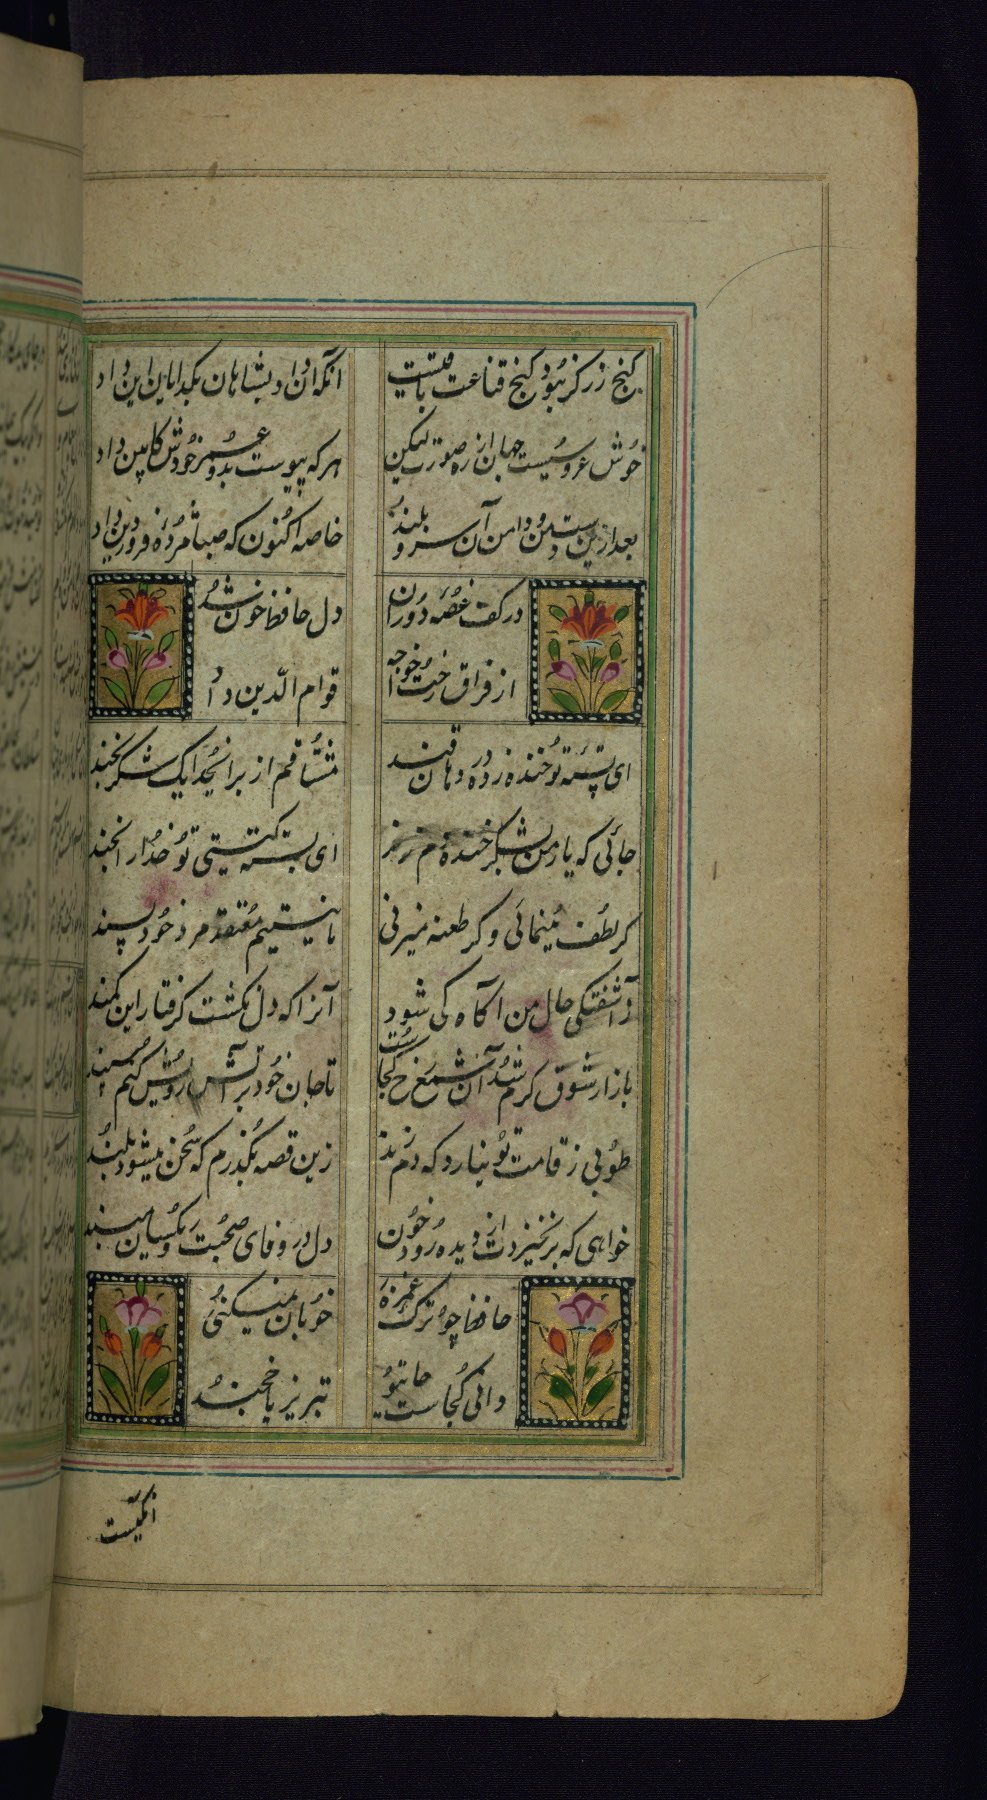 کنج زر گر نبود کنج قناعت باقیست
انکه آن داد بشاهان بکدایان این داد
خوش عروسیست جهان از ره صورت لیکن
هر که پیوست بدو عمر خودش کابین داد
بعد ازین دست من و دامن آن سرو بلند
خاصه اکنون که صبا مژده فروردین داد
در کف غصه دوران
دل حافظ خون شد
از فراق رخت ای خوجه
قوام الدین داد
ای پسته تو خنده زده در دهان قند
مشتاقم از برای خدا یک شکر بخند
جائی که یار من بشکر خنده دم زند
ای پسته کیستی تو خدا را بخند
کر لطف مینمائی و کر طعنه میزنی
ما نیستیم معتقد مرد خود پسند
ز آشفتکی حال من آکاه کی شود
آنرا که دل نکشت کرفتار این کمند
بازار شوق کرم شد آن شمع رخ کجاست
تا جان خود بر آتش رویش کنم سپند
طوبی ز قامت تو نیارد که دم زند
زین قصه بکذرم که سخن میشود بلند
خواهی که بر نخیزدت از دیده رود خون
دل در وفای صحبت رود کسان مبند
حافظ چو ترک غمزه
خوبان نمیکنی
دانی کجاست جای تو
تبریز یا خجند